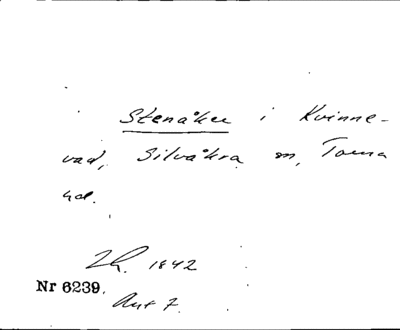 Stenåker i Kvinne-
vad, Silvåkra sn, Torna
hd.
Lh. 1842
Nr 6239.
Avt 7.